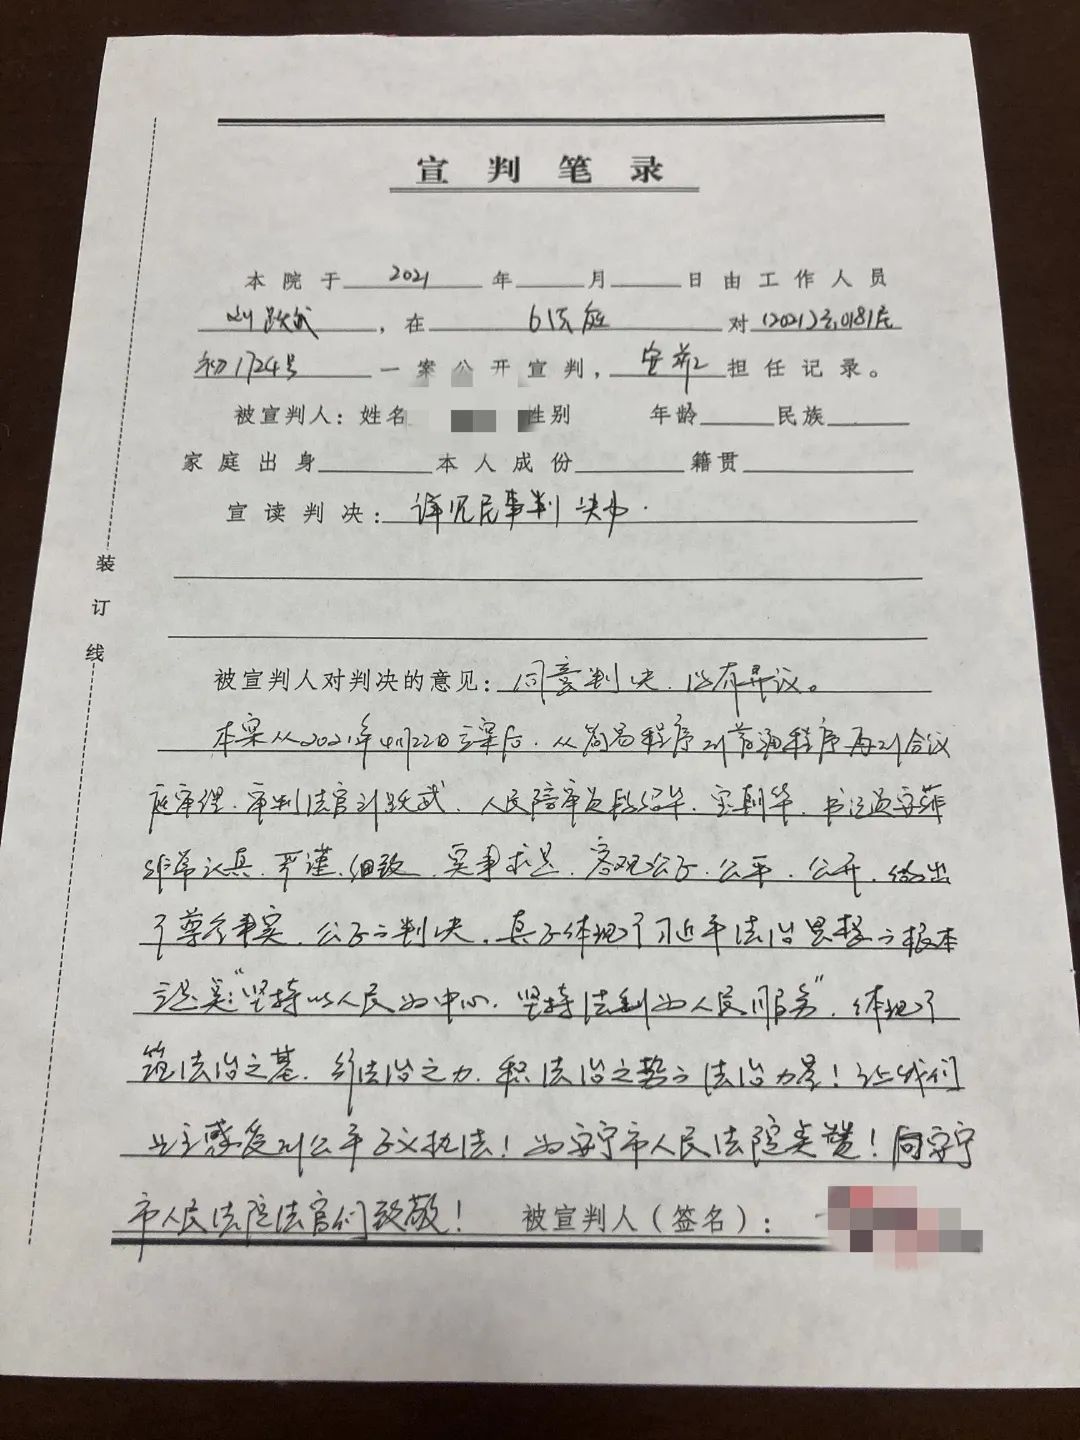 宣判笔录
本院于 2021 年 月 日由工作人员
刘跃武，在 6法庭 对（2021）云0181民
初1724号 一案公开宣判， 担任记录。
被宣判人：姓名 性别 年龄 民族
家庭出身 本人成份 籍贯
宣读判决：详见民事判决书.
装订线
被宣判人对判决的意见：同意判决，没有异议。
本案从2021年4月22日立案后，从简易程序到普通程序再到合议
庭审理，审判法官刘跃武、人民陪审员段 华、 朝华，书记员安菲
非常认真、严谨、细致，实事求是，客观公正、公平、公开，做出
了尊重事实、公正之判决，真正体现了习近平法治思想之根本
立足点："坚持以人民为中心，坚持法制为人民服务"，体现了
筑法治之基、行法治之力、积法治之势之法治力量！让我们
业主感受到公平正义执法！为安宁市人民法院点赞！向安宁
市人民法院法官们致敬！ 被宣判人（签名）：